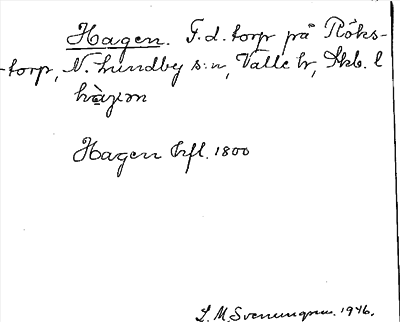 Hagen. F.d. torp på Röks-
-torp, N. Lundby s:n, Valle hr, Skb. l
hàɡən
Hagen hfl. 1800
S. M. Svenungson. 1946.